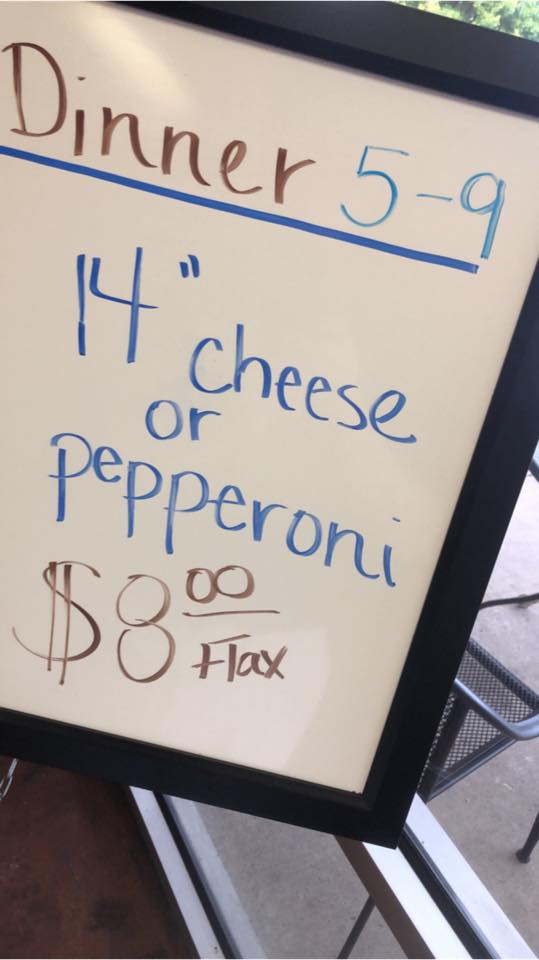 Dinner 5-9
14" cheese
or
pepperoni
$8 00
+Tax